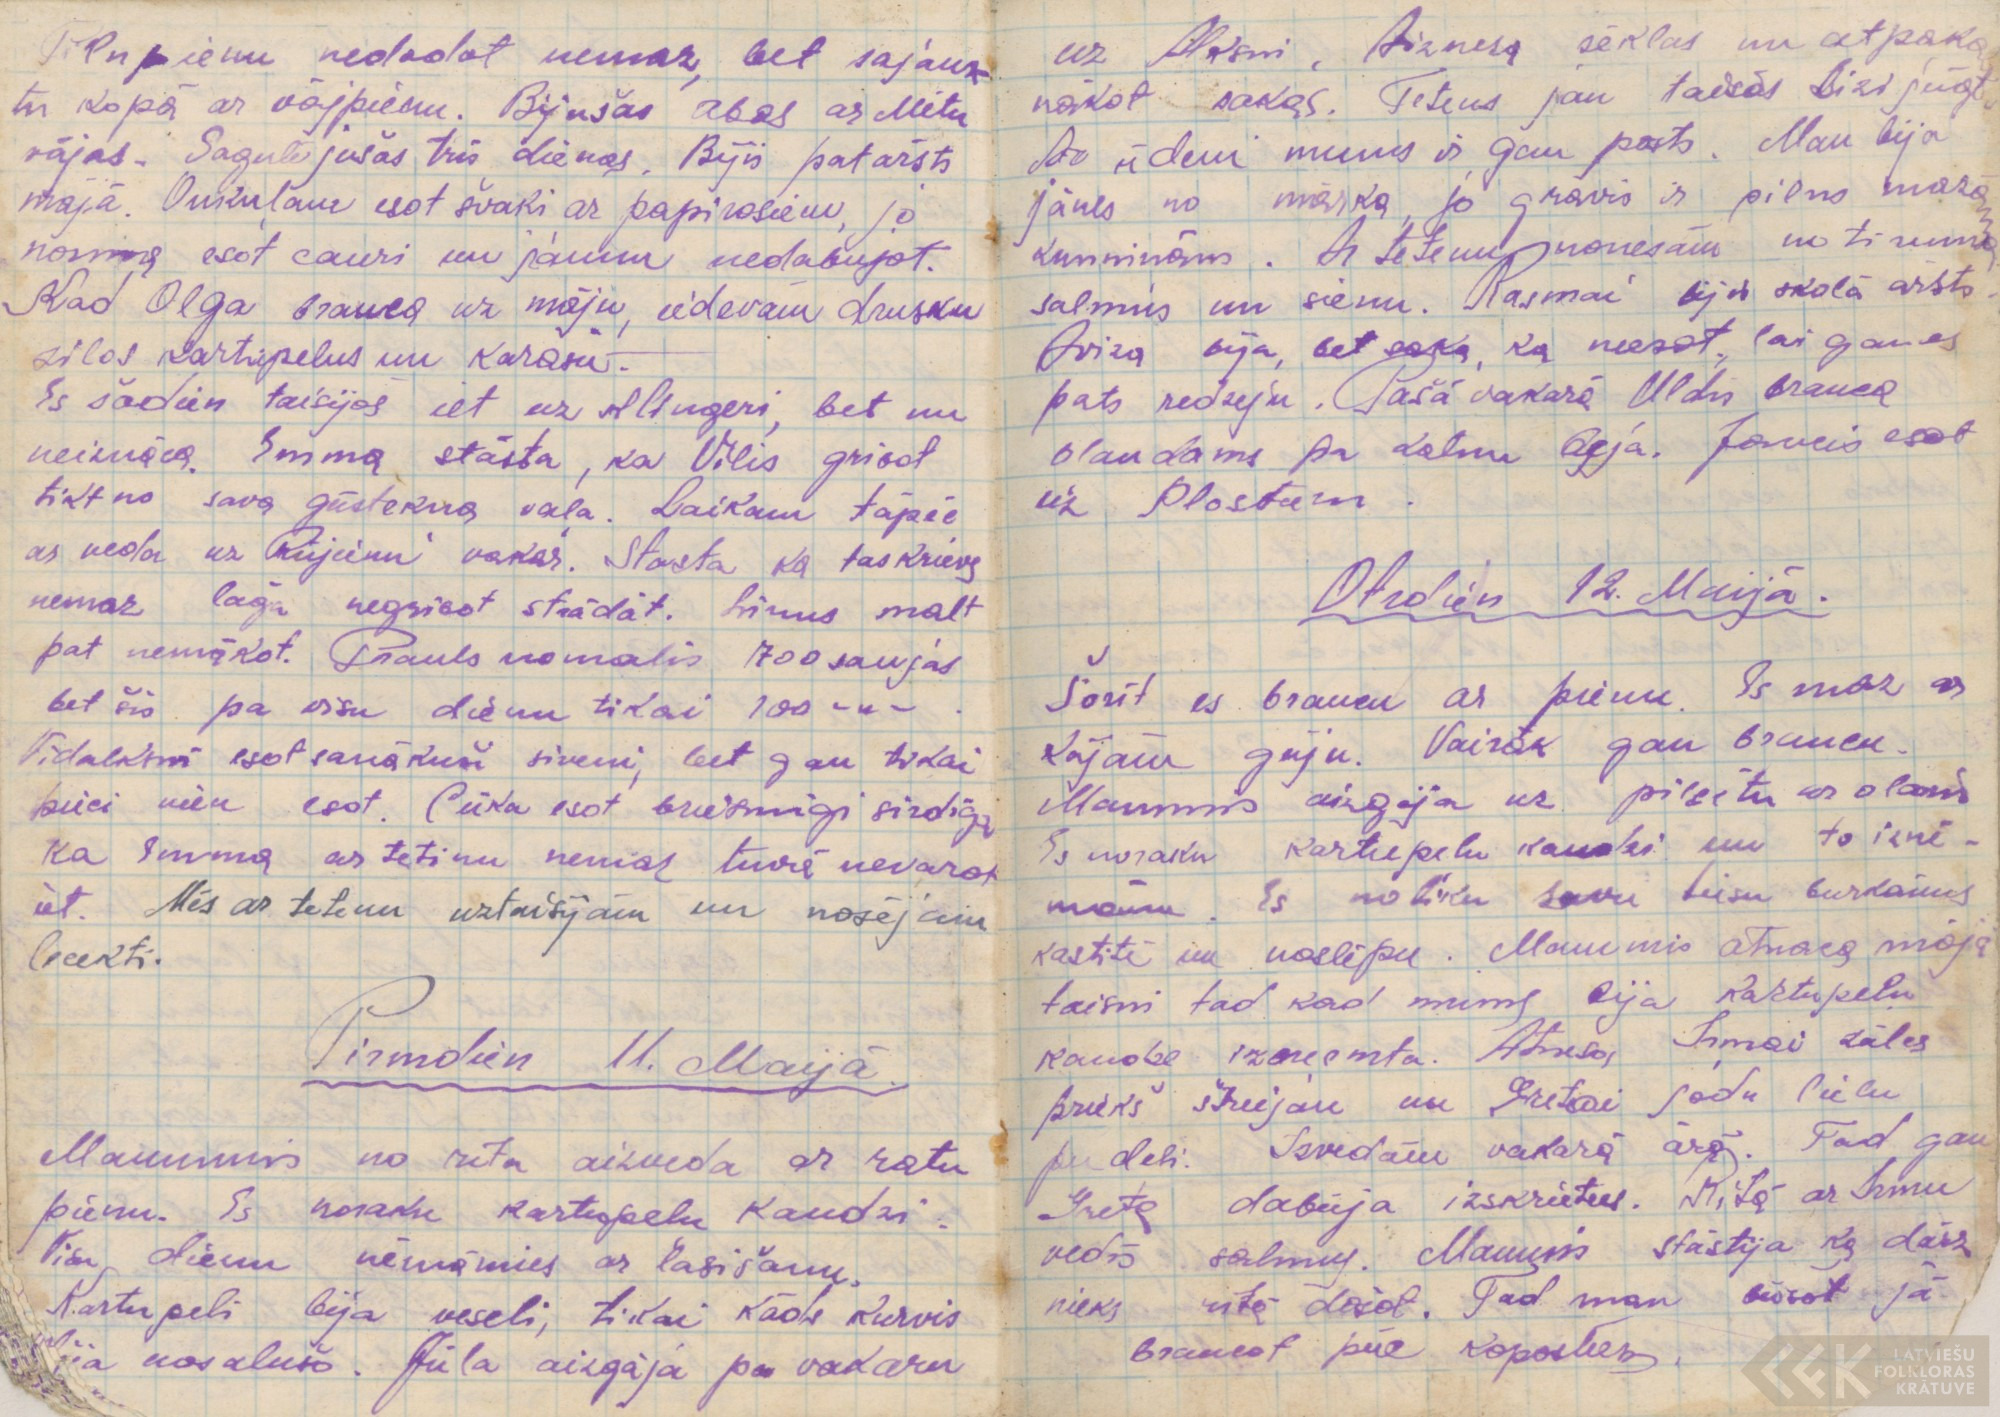 Pilnpienu nedodot nemaz, bet sajauk-
tu kopā ar vājpienu. Bijušas abas ar Mētu
vājas. Sagulējušas tris dienas. Bijis pat ārsts
mājā. Onkuļam esot švaki ar papirosiem, jo
norma esot cauri un jaunu nedabūjot.
Kad Olga brauca uz māju, iedevām drusku
zilos kartupeļus un karāsu.
Es šodien taisijos iet uz Alsngeri, bet nu
neiznāca. Emma stāsta, ka Vilis gribot
tikt no sava gūstekņa vaļā. Laikam tāpēc
as veda uz Rūjienu vakar. Stasta ka tas krievs
nemaz lāga negribot strādāt. Linus malt
pat nemākot. Prauls nomalis 700 saujas
bet šis pa visu dienu tikai 100 -"- .
Vidalksni esot sanākuši siveni, bet gan tikai
pieci vien esot. Cūka esot briesmīgi sirdīga
ka Emma ar tetiņu nemaz tuvu nevarot
iet. Mēs ar tetenu uztaisījām un nosējām
lecekti.
Pirmdien 11. Maijā.
Mammis no rīta aizveda ar ratu
pienu. Es noraku kartupeļu kaudzi.
Visu dienu nēmāmies ar lasišanu.
Kartupeļi bija veseli, tikai kāds kurvis
bija nosalušo. Jūla aizgāja pa vakaru
uz Alksni. Aiznesa sēklas un atpakaļ
nākot sakas. Tetens jau taisās drīzi jūgt
Ar ūdeni mums ir gan posts. Man bija
jānes no mārka, jo grāvis ir pilns mazām
kunninām. Ar tetenu nonesām no tiruma
salmus un sienu. Rasmai bijis skolā ārsts.
Aviza bija, bet saka, ka neesot, lai gan es
pats redzeju. Pašā vakarā Uldis brauca
blaudams pa kalnu lejā. Jancis esot
uz Plostiem.
Otrdien 12. Maijā.
Šorīt es braucu ar pienu. Es maz ar
kājām gāju. Vairāk gan braucu.
Mammis aizgāja uz pilsētu ar olām
Es noraku kartupeļu kaudzi un to iznē-
mām. Es noliku savu tiesu burkānus
kastītē un noslēpu. Mammis atnaca mājā
taisni tad kad mums bija kartupeļu
kaudze izņemta. Atnesa Irmai zāles
priekš strejām un Gretai jodu lielu
pudeli. Izvedām vakarā ārā. Tad gan
Greta dabūja izskrieties. Rītā ar Irmu
vedīs salmus. Mammis stāstija ka dārz
nieks rītā došot. Tad man būšot jā-
braucot pēc kāpostiem.
LATVIEŠU
FOLKLORAS
KRĀTUVE